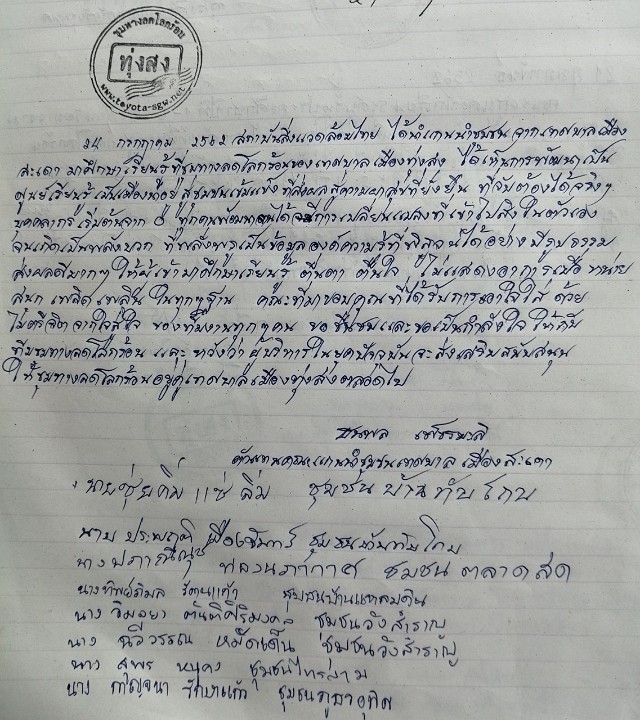 ชุมทางลดโลกร้อน
ทุ่งสง
www.toyota-sgw.net
24 กรกฎาคม 2562 สถาบันสิ่งแวดล้อมไทย ได้นำแกนนำชุมชน จากเทศบาลเมือง
สะเดา มาศึกษาเรียนรู้ที่ชุมทางลดโลกร้อนของเทศบาลเมืองทุ่งสง ได้เห็นการพัฒนาเป็น
ศูนย์เรียนรู้ เป็นเมืองน่าอยู่ สู่ชุมชนเข้มแข็ง ที่ส่งผลสู่ความผาสุขที่ยั่งยืน ที่จับต้องได้จริงๆ
บุคคลากร เริ่มต้นจาก 0 สู่ทุกคนพัฒนาตนได้ มีการเปลี่ยนแปลงที่เข้าไปสิงในตัวเอง
จนเกิดเป็นพลังบวก ที่พรั่งพรูเป็นข้อมูลองค์ความรู้ที่พิสูจน์ได้อย่างมีรูปธรรม
ส่งผลดีมากๆ ให้ผู้เข้ามาศึกษาเรียนรู้ ตื่นตา ตื่นใจ ไม่แสดงอาการเบื่อหน่าย
สนุก เพลิดเพลิน ในทุกๆฐาน คณะที่มาขอบคุณที่ได้รับการเอาใจใส่ ด้วย
ไมตรีจิตจากใจสู่ใจ ของทีมงานทุกๆคน ขอชื่นชมและขอเป็นกำลังใจ ให้กับ
ทีมชุมทางลดโลกร้อน และหวังว่า ผู้บริหารในยุคปัจจุบันจะส่งเสริมสนับสนุน
ให้ชุมทางลดโลกร้อนอยู่คู่เทศบาลเมืองทุ่งสงตลอดไป
ตัวแทนคณะแกนนำชุมชนเทศบาลเมืองสะเดา
นาย แซ่ลิ่ม ชุมชนบ้านทับโกบ
นาย ประพฤติ เมืองจันทร์ ชุมชนบ้านทับโกบ
นาง ชุมชน ตลาดสด
นางทิพย์ภิมล รัตนแก้ว ชุมชนบ้านแหลมดิน
นาง วิมลยา ตันทิศิริมงคล ชุมชนวังสำราญ
นาง ฉวีวรรณ หมัดเด็น ชุมชนวังสำราญ
นาง สุพร หนูคง ชุมชนไทรงาม
นาง กาญจนา รักษาแก้ว ชุมชน